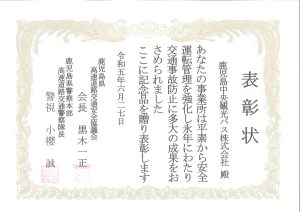 表彰状
鹿児島中央観光バス株式会社 殿
あなたの事業所は平素から安全
運転管理を強化し永年にわたり
交通事故防止に多大の成果をお
さめられました
ここに記念品を贈り表彰します
令和五年六月二七日
鹿児島県
高速道路交通安全協議会
会長 黒木一正
鹿児島県警察本部
高速道路交通警察隊長
警視 小櫻 誠